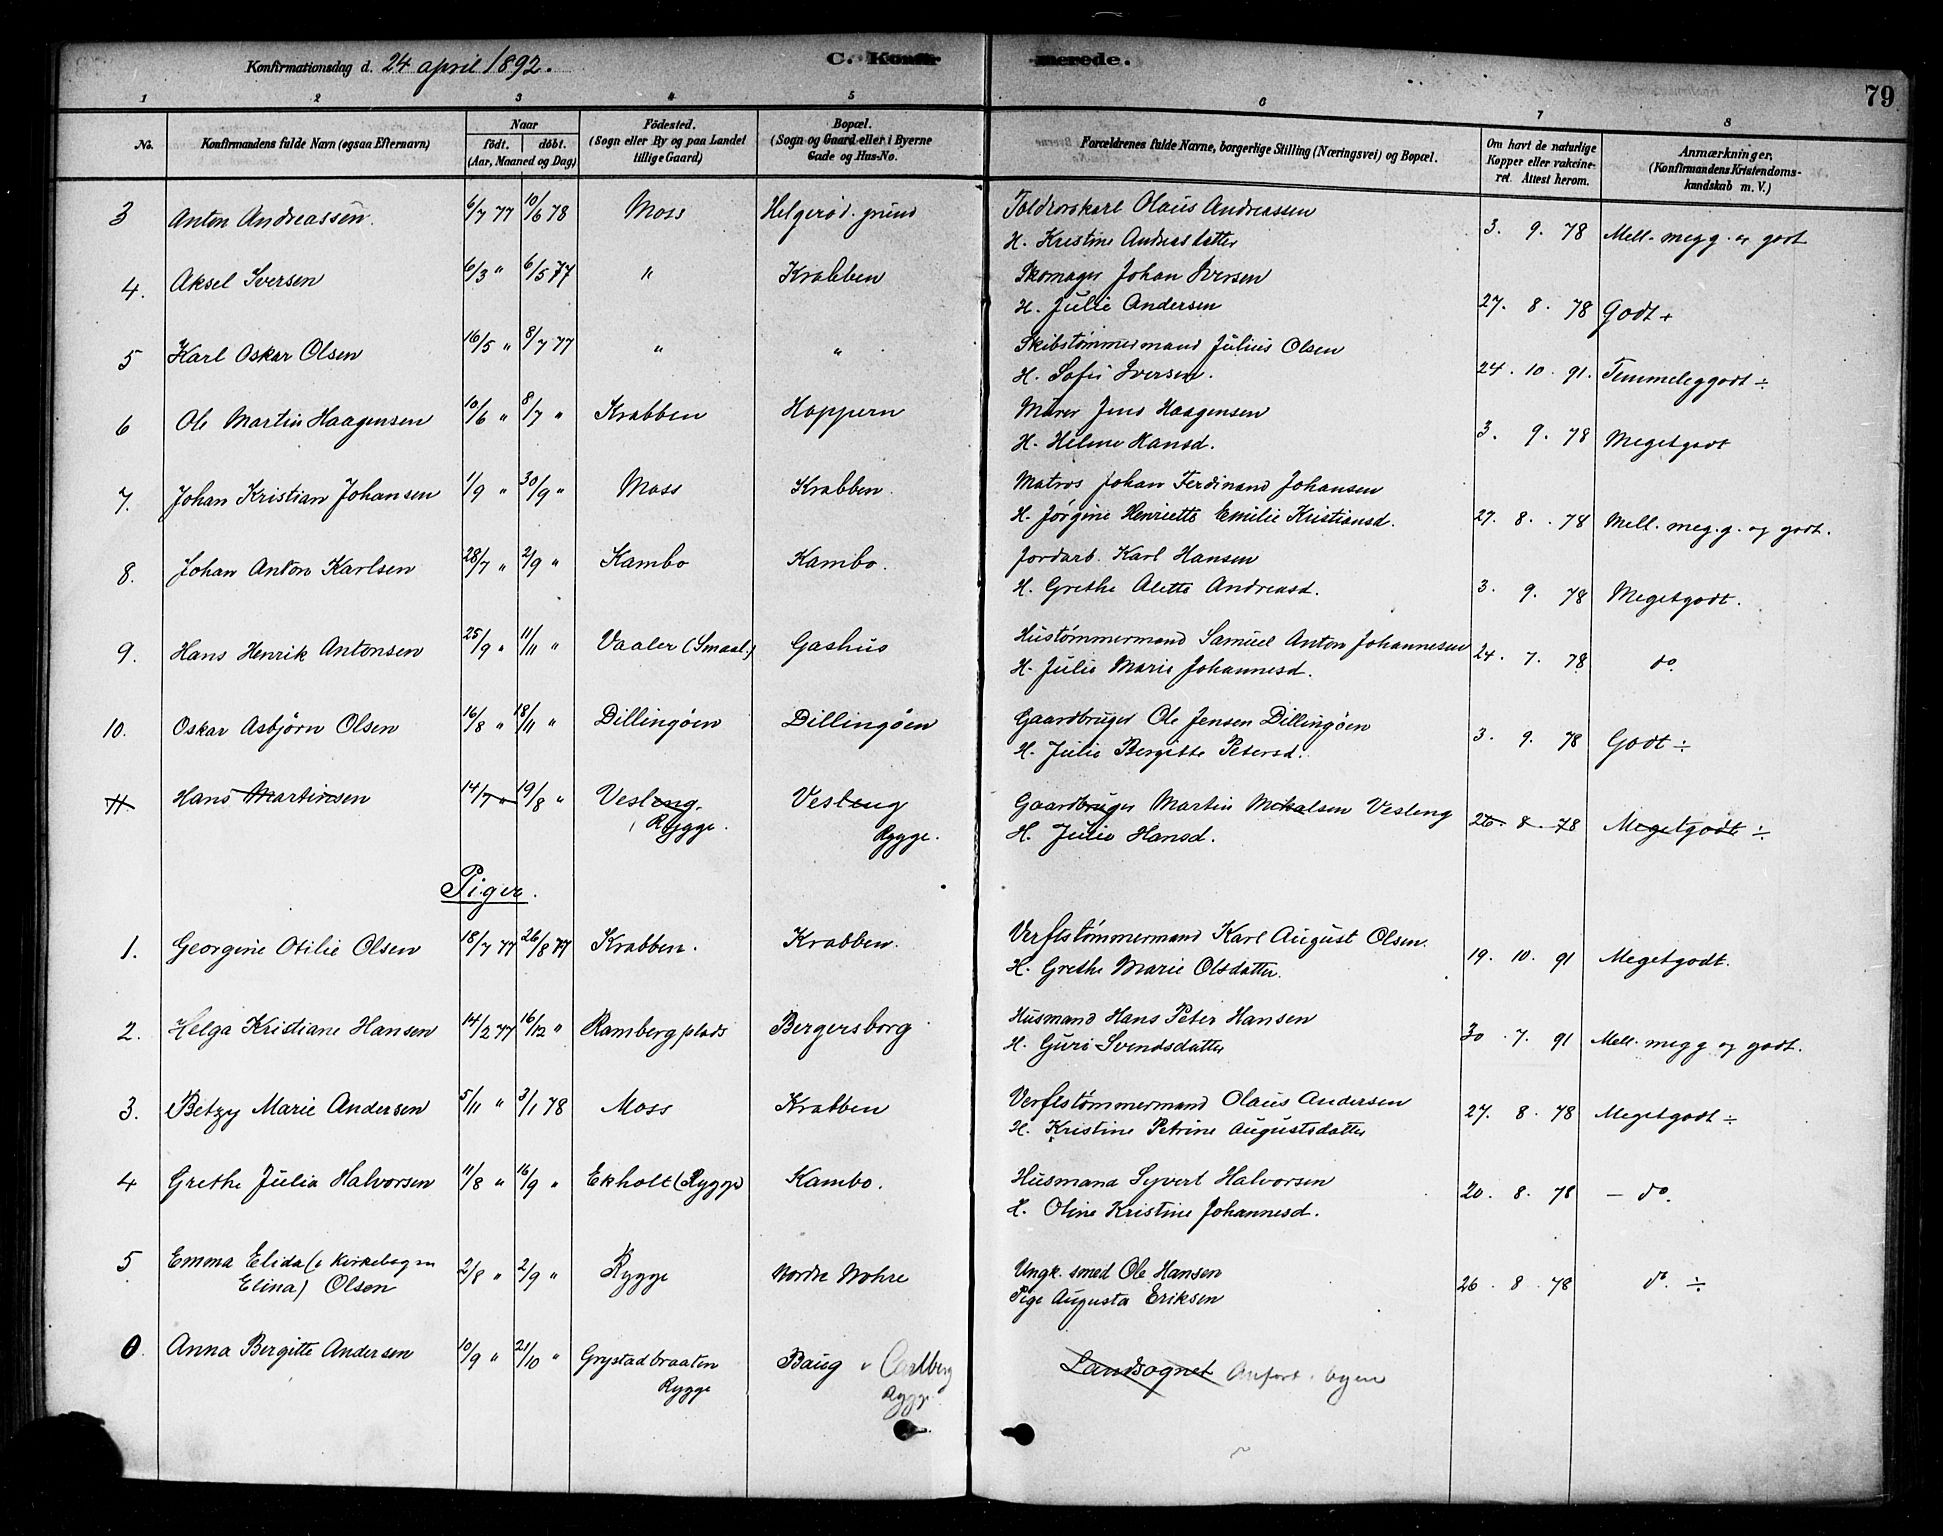 Konfirmationsdag d. 24 april 1892.
C. Konfirmerede.
79
1 2 3 4 5 6 7 8
No.
Konfirmandens fulde Navn (ogsaa Efternavn)
Naar
født. døbt.
(Aar, Maaned og Dag)
Fødested.
(Sogn eller By og paa Landet
tillige Gaard)
Bopæl.
(Sogn og Gaard eller i Byerne
Gade og Hus-No.
Forældrenes fulde Navne, borgerlige Stilling (Næringsvei) og Bopæl.
Om havt de naturlige
Kopper eller vakcine-
ret. Attest herom.
Anmærkninger.
(Konfirmandens Kristendoms-
kundskab m. V.)
3 Anton Andreassen. 6/7 77 10/6 78 Moss Helgerød. grund Toldrorskarl Olaus Andreassen
H. Kristine Andreasdatter 3. 9. 78 Mell. meg g. og godt
4. Aksel Iversen 6/3 " 6/5 77 " Krabben Skomager Johan Iversen
H. Julie Andersen 27. 8. 78 Godt +
5 Karl Oskar Olsen 16/5 " 8/7 77 " " Skibstømmermand Julius Olsen
H. Sofie Iversen. 24. 10. 91. Temmeliggodt ÷
6 Ole Martin Haagensen 10/6 " 8/7 " Krabben Hoppern Murer Jens Haagensen
H. Helene Hansd. 3. 9. 78 Megetgodt
7. Johan Kristian Johansen 1/9 " 30/9 " Moss Krabben. Matros Johan Ferdinand Johansen
H. Jørgine Henriette Emilie Kristiansd. 27. 8. 78 Mell. meg. g. og godt.
8. Johan Anton Karlsen 28/7 " 2/9 " Kambo Kambo. Jordarb. Karl Hansen
H. Grethe Alette Andreasd. 3. 9. 78 Megetgodt.
9. Hans Henrik Antonsen 25/9 " 11/11 " Vaaler (Smaal.) Gashus Hustømmermand Samuel Anton Johannesen
H. Julie Marie Johannesd. 24. 7. 78 do.
10. Oskar Asbjørn Olsen 16/8 " 18/11 " Dillingøen Dillingøen Gaardbruger Ole Jensen Dillingøen
H. Julie Bergitte Petersd. 3. 9. 78 Godt ÷
11 Hans Martinsen 14/7 " 19/8 " Vesleng. Vesleng Gaardbruger Martin Mikalsen Vesleng
Rygge. Rygge. H. Julie Hansd. 26. 8. 78 Megetgodt ÷
Piger.
1. Georgine Otilie Olsen 18/7 77 26/8 77 Krabben. Krabben. Verftstømmermand Karl August Olsen.
H. Grethe Marie Olsdatter. 19. 10. 91 Megetgodt.
2. Helga Kristiane Hansen 14/2 77 16/12 " Ramberg plads Bergersborg Husmand Hans Peter Hansen
H. Guri Svendsdatter 30. 7. 91 Mell. meg g og godt.
3. Betzy Marie Andersen 5/11 " 3/1 78 Moss Krabben Verftstømmermand Olaus Andersen
H. Kristine Petrine Augustsdatter 27. 8. 78 Megetgodt ÷
4 Grethe Julia Halvorsen 11/8 " 16/9 " Ekholt (Rygge) Kambo. Husmand Syvert Halvorsen
H. Oline Kristine Johannesd. 20. 8. 78 — do.
5 Emma Elida (i Kirkebogen
Elina) Olsen 2/8 " 2/9 " Rygge Nordre Nohre Ungk. smed Ole Hansen
Pige Augusta Eriksen 26. 8. 78 do. ÷
0. Anna Bergitte Andersen 10/9 " 21/10 " Grystadbraaten Baug v Carlberg Landsognet Anført i byen
Rygge Rygge